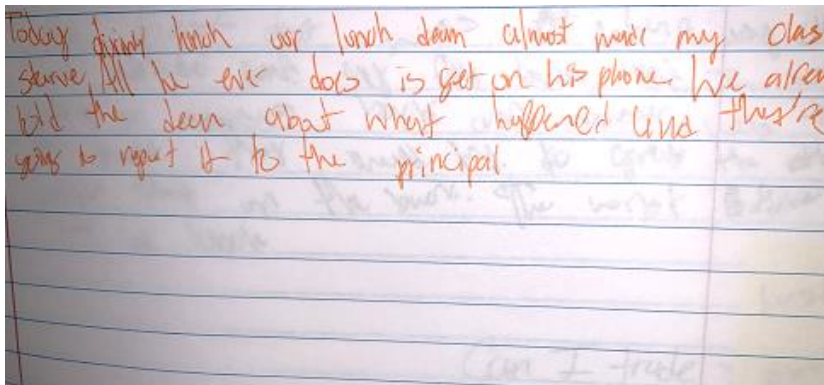 Today during lunch our lunch dean almost made my clas
starve. All he ever does is get on his phone. We alrea
told the dean about what happened and they're
going to report it to the principal.
Can I trade